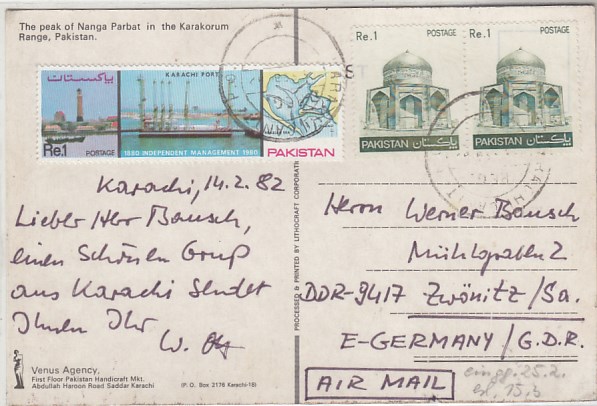 The peak of Nanga Parbat in the Karakorum
Range, Pakistan.
پاکستان
KARACHI PORT
Re.1 POSTAGE
1880 INDEPENDENT MANAGEMENT 1980
PAKISTAN
Re.1 POSTAGE
PAKISTAN پاکستان
Re.1 POSTAGE
PAKISTAN پاکستان
Karachi, 14.2.82
Lieber Herr Bausch,
einen Schönen Gruß
aus Karachi sendet
Ihnen Ihr
W.
PROCESSED & PRINTED BY LITHOCRAFT CORPORATION
Herrn Werner Bausch
Mühlgraben 2
DDR-9417 Zwönitz/Sa.
E-GERMANY/G.D.R.
AIR MAIL
eingg. 25.2.
15.3
Venus Agency,
First Floor Pakistan Handicraft Mkt.
Abdullah Haroon Road Saddar Karachi
(P.O. Box 2176 Karachi-18)